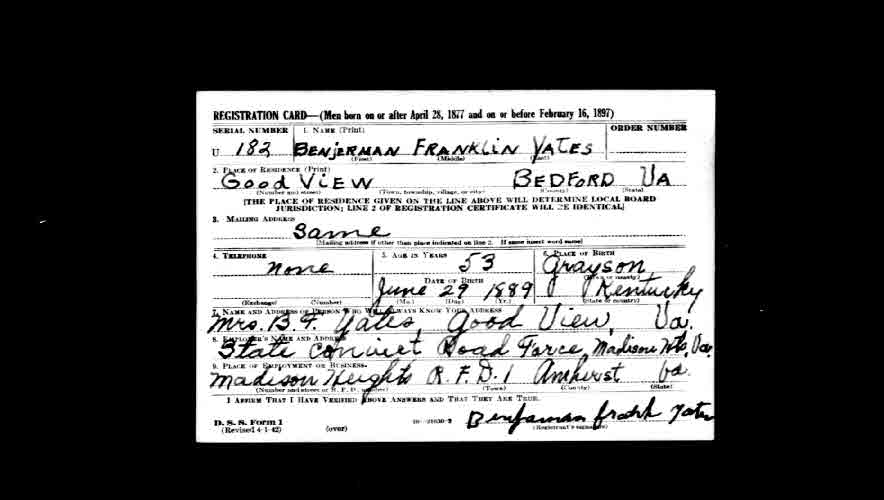 REGISTRATION CARD—(Men born on or after April 28, 1877 and on or before February 16, 1897)
SERIAL NUMBER 1. NAME (Print) ORDER NUMBER
U 182 BENJERMAN FRANKLIN YATES
(First) (Middle) (Last)
2. PLACE OF RESIDENCE (Print)
Good VIEW BEDFORD VA
(Number and street) (Town, township, village, or city) (County) (State)
[THE PLACE OF RESIDENCE GIVEN ON THE LINE ABOVE WILL DETERMINE LOCAL BOARD
JURISDICTION; LINE 2 OF REGISTRATION CERTIFICATE WILL BE IDENTICAL]
3. MAILING ADDRESS
Same
[Mailing address if other than place indicated on line 2. If same insert word same]
4. TELEPHONE 5. AGE IN YEARS 6. PLACE OF BIRTH
none 53 Grayson
DATE OF BIRTH (Town or county)
June 29 1889 Kentucky
(Exchange) (Number) (Mo.) (Day) (Yr.) (State or country)
7. NAME AND ADDRESS OF PERSON WHO WILL ALWAYS KNOW YOUR ADDRESS
Mrs. B. F. Yates, Good View, Va.
8. EMPLOYER'S NAME AND ADDRESS
State Convict Road Force, Madison Hts, Va.
9. PLACE OF EMPLOYMENT OR BUSINESS
Madison Heights R.F.D. 1 Amherst Va.
(Number and street or R. F. D. number) (Town) (County) (State)
I AFFIRM THAT I HAVE VERIFIED ABOVE ANSWERS AND THAT THEY ARE TRUE.
D. S. S. Form 1 Benjaman frank Yates
(Revised 4-1-42) (over) 16—21630-2 (Registrant's signature)